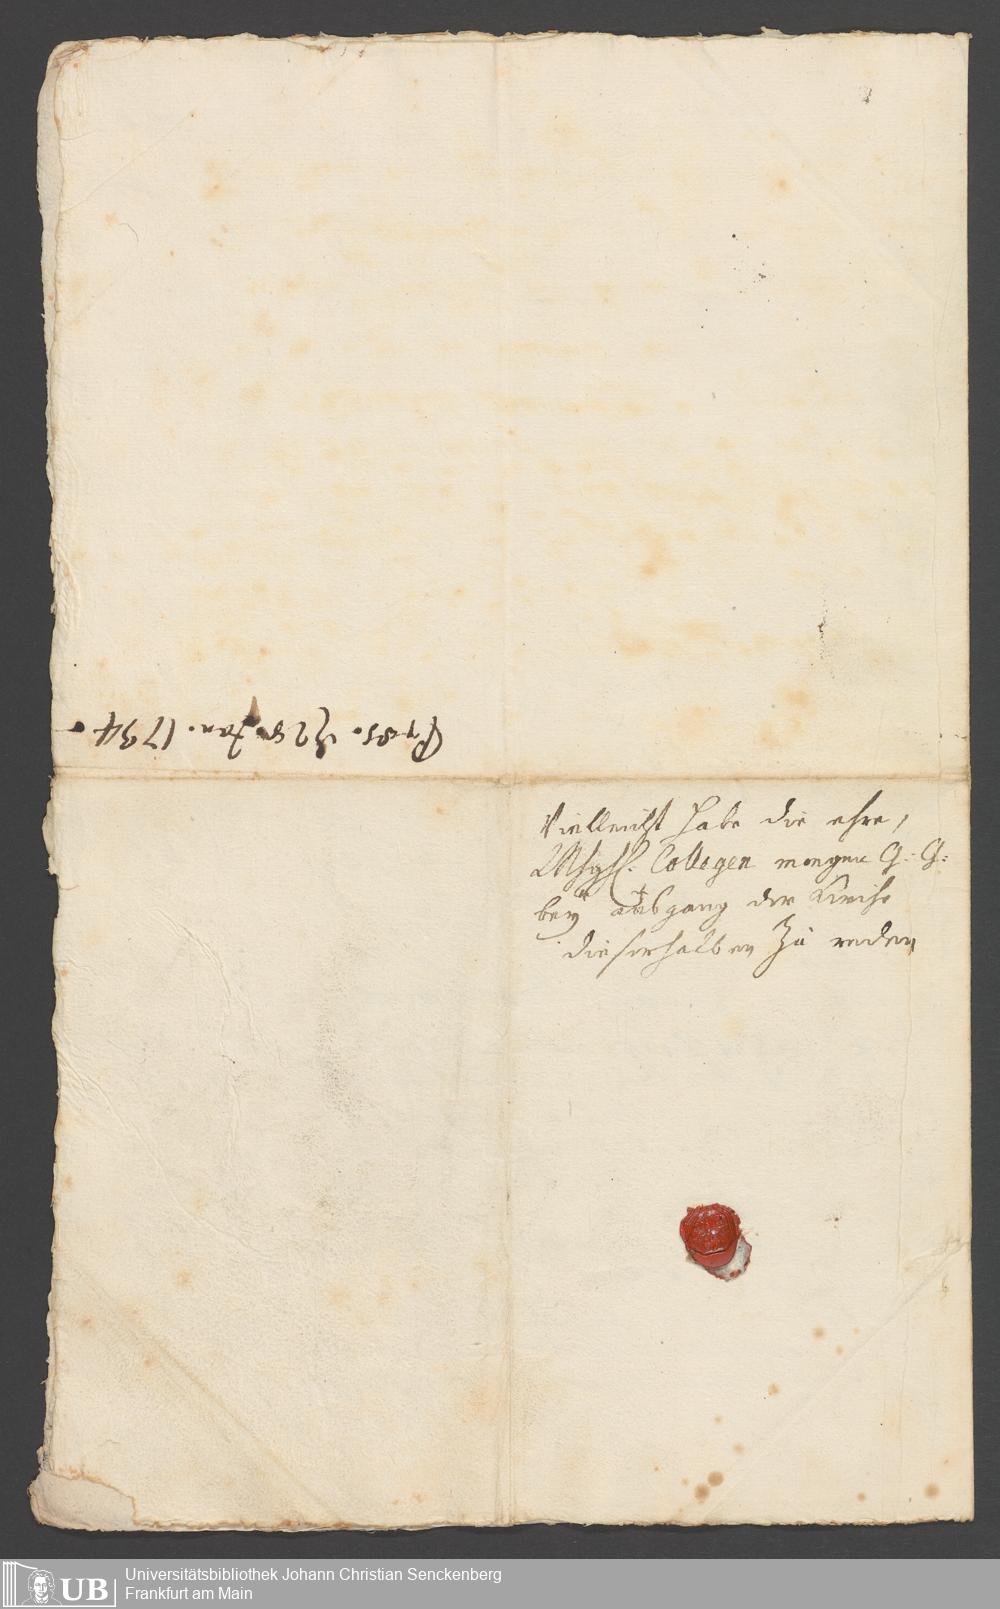 Præs. d 28. Jan. 1734.
Vielleicht habe die ehre,
Mhghl. Collegen morgen G: G:
bey ausgang der Kirche
dieserhalben zu reden
UB
Universitätsbibliothek Johann Christian Senckenberg
Frankfurt am Main